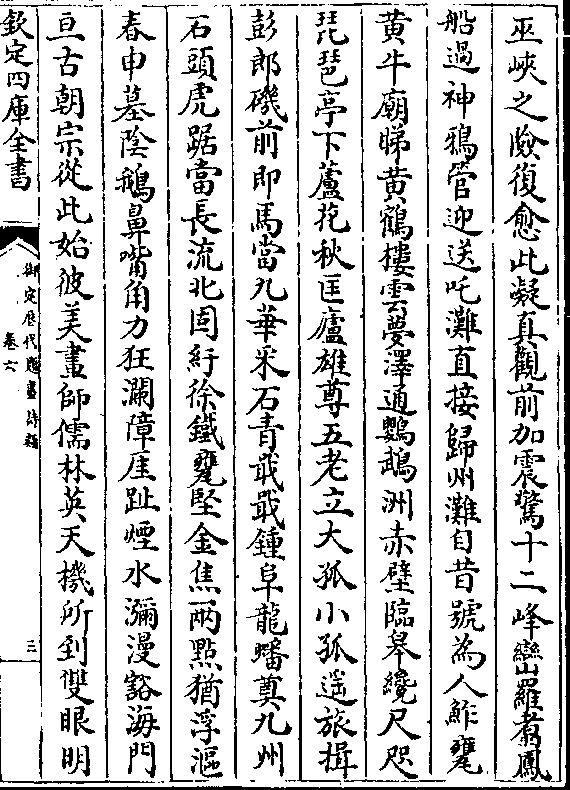 巫峽之險復愈此凝真觀前加震驚十二峰巒羅翥鳳
船過神鴉管迎送吒灘直接歸州灘自昔號為人鮓甕
黄牛廟睇黄鶴樓雲夢澤通鸚鵡洲赤壁臨皋纔尺咫
琵琶亭下蘆花秋匡廬雄尊五老立大孤小孤遥旅揖
彭郎磯前即馬當九華采石青戢戢鍾阜龍蟠奠九州
石頭虎踞當長流北固紆徐鐵甕堅金焦兩點猶浮漚
春申墓陰鵝鼻嘴角力狂瀾障厓趾煙水瀰漫豁海門
亘古朝宗從此始彼美畫師儒林英天機所到雙眼明
欽定四庫全書
御定歷代題畫詩類
卷六
三